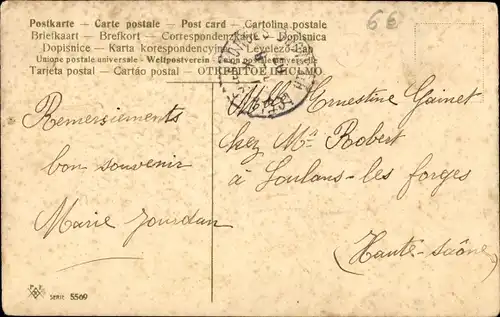 Postkarte - Carte postale - Post card - Cartolina postale
Briefkaart - Brefkort - Correspondenzkarte - Dopisnica
Dopisnice - Karta korespondencyjna - Levelező-Lap
Union postale universelle - Weltpostverein - Union postale universelle
Tarjeta postal - Cartão postal - ОТКРЫТОЕ ПИСЬМО
6€
Remersiements
bon souvenir
Marie Jourdan
Melle Ernestine Gainet
chez Ma Robert
à Loulans-les forges
(Haute-saône)
SERIE 5569